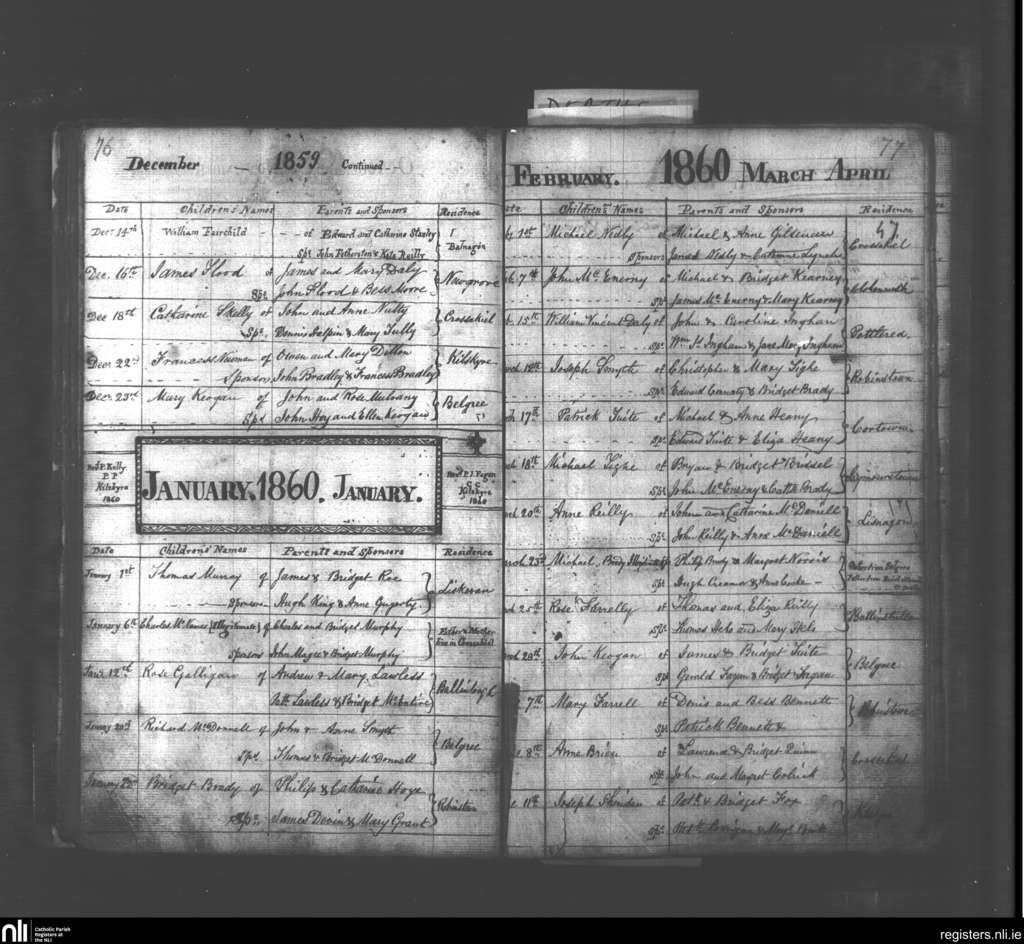 DEATHS
76
December 1859 Continued
Date Children's Names Parents and Sponsors Residence
Decr 14th William Fairchild of Edward and Catherine Stanley
Sps John Fetherston & Kate Reilly Balnagon
Dec. 16th James Flood of James and Mary Daly
Sps. John Flood & Bess Moore Newgrove
Dec 18th Catherine Skelly of John and Anne Nulty
Sps. Dennis Halpin & Mary Tully Crossakiel
Decr 22nd Frances Newman of Owen and Mary Dillon
Sponsors John Bradley & Frances Bradley Kilskyre
Decr 23rd Mary Keogan of John and Rose Mulvany
Sps John Hoy and Ellen Keogan Belgree
Revd P. Kelly
P P
Kilskyre
1860
January, 1860. January.
Revd P. J. Fagan
C C
Kilskyre
1860
Date Children's Names Parents and Sponsors Residence
January 1st Thomas Murray of James & Bridget Roe
Sponsors Hugh King & Anne Gugerty Liskeran
January 6th Charles McNamee (Illegitimate) of Charles and Bridget Murphy
Sponsors John Magee & Bridget Murphy Father & Mother
Jany 12th Rose Galligan of Andrew & Mary Lawless
Patk Lawless & Bridget McEntire
January 20th Richard McDonnell of John & Anne Smyth
Sps Thomas & Bridget McDonnell Belgree
January 22 Bridget Brady of Philip & Catharine Hoye
Sps. James Devin & Mary Grant Robinston
77
February. 1860 March April
Date Children's Names Parents and Sponsors Residence
47
1st Michael Nedly of Michael & Anne Gilsenan
Sponsors James Nedly & Catherine Lynch Crossakiel
7th John McEnerny of Michael & Bridget Kearney
Sps James McEnerny & Mary Kearney
15th William Vincent Daly of John & Caroline Ingham
Sps. Wm St Ingham & Jane Mary Ingham Pottlered
Joseph Smyth of Christopher & Mary Tighe
Sps. Edward Geraty & Bridget Brady Robinstown
17th Patrick Tuite of Michael & Anne Heany
Sps. Edward Tuite & Eliza Heany Cortown
18th Michael Tighe of Bryan & Bridget
Sps. John McEnerny & Cathe Brady
20th Anne Reilly of John and Catharine McDaniell
Sps. John Reilly & Anne McDaniell Lisnagon
23rd Michael Brady Illegitimate of Philip Brady & Margaret Norris
Sps Hugh Creamer & Anne
25th Rose Farrelly of Thomas and Eliza Reilly
Sps. Thomas and Mary
28th John Keogan of James & Bridget Tuite
Sps Gerald Fagan & Bridget Fagan Belgree
7th Mary Farrell of Denis and Bess Bennett
Sps Patrick Bennett &
8th Anne Brien of Lawrence & Bridget Quinn
Sps. John and Margret
11th Joseph Sheridan of Patk & Bridget Fox
Sps.
nli Catholic Parish
Registers at
the NLI
registers.nli.ie